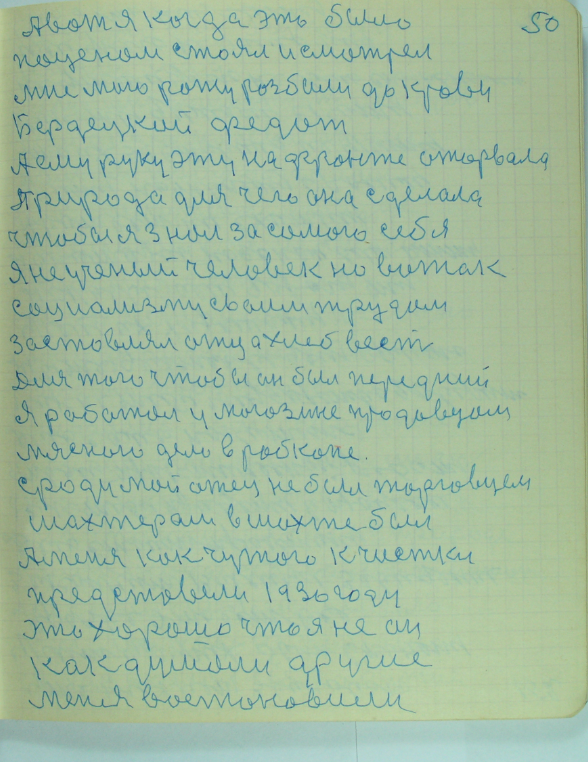 50
Авот я когда это было
поценом стоял и смотрел
мне мою рожу розбили до крови
Бердецкий федот
Аему руку эту на фронте оторвала
Природа для чего она сделала
чтобы я знол за самого себя
я не ученый человек но вот как
социализму своим трудом
застовлял отца хлеб вест
Для того чтобы он был передний
Я работал у могозине продовцом
мясного дело в робкопе.
сроду мой отец не был торговцем
шахтерам в шахте был
Аменя как чутого к чистки
предстовели 1936 году
это хорошо что я не он
как думоли другие
меня востоновили